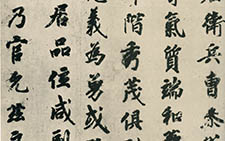 衛兵曹參
氣質端和
階秀茂俱列
義為勇或
居品位咸副
乃官允茲